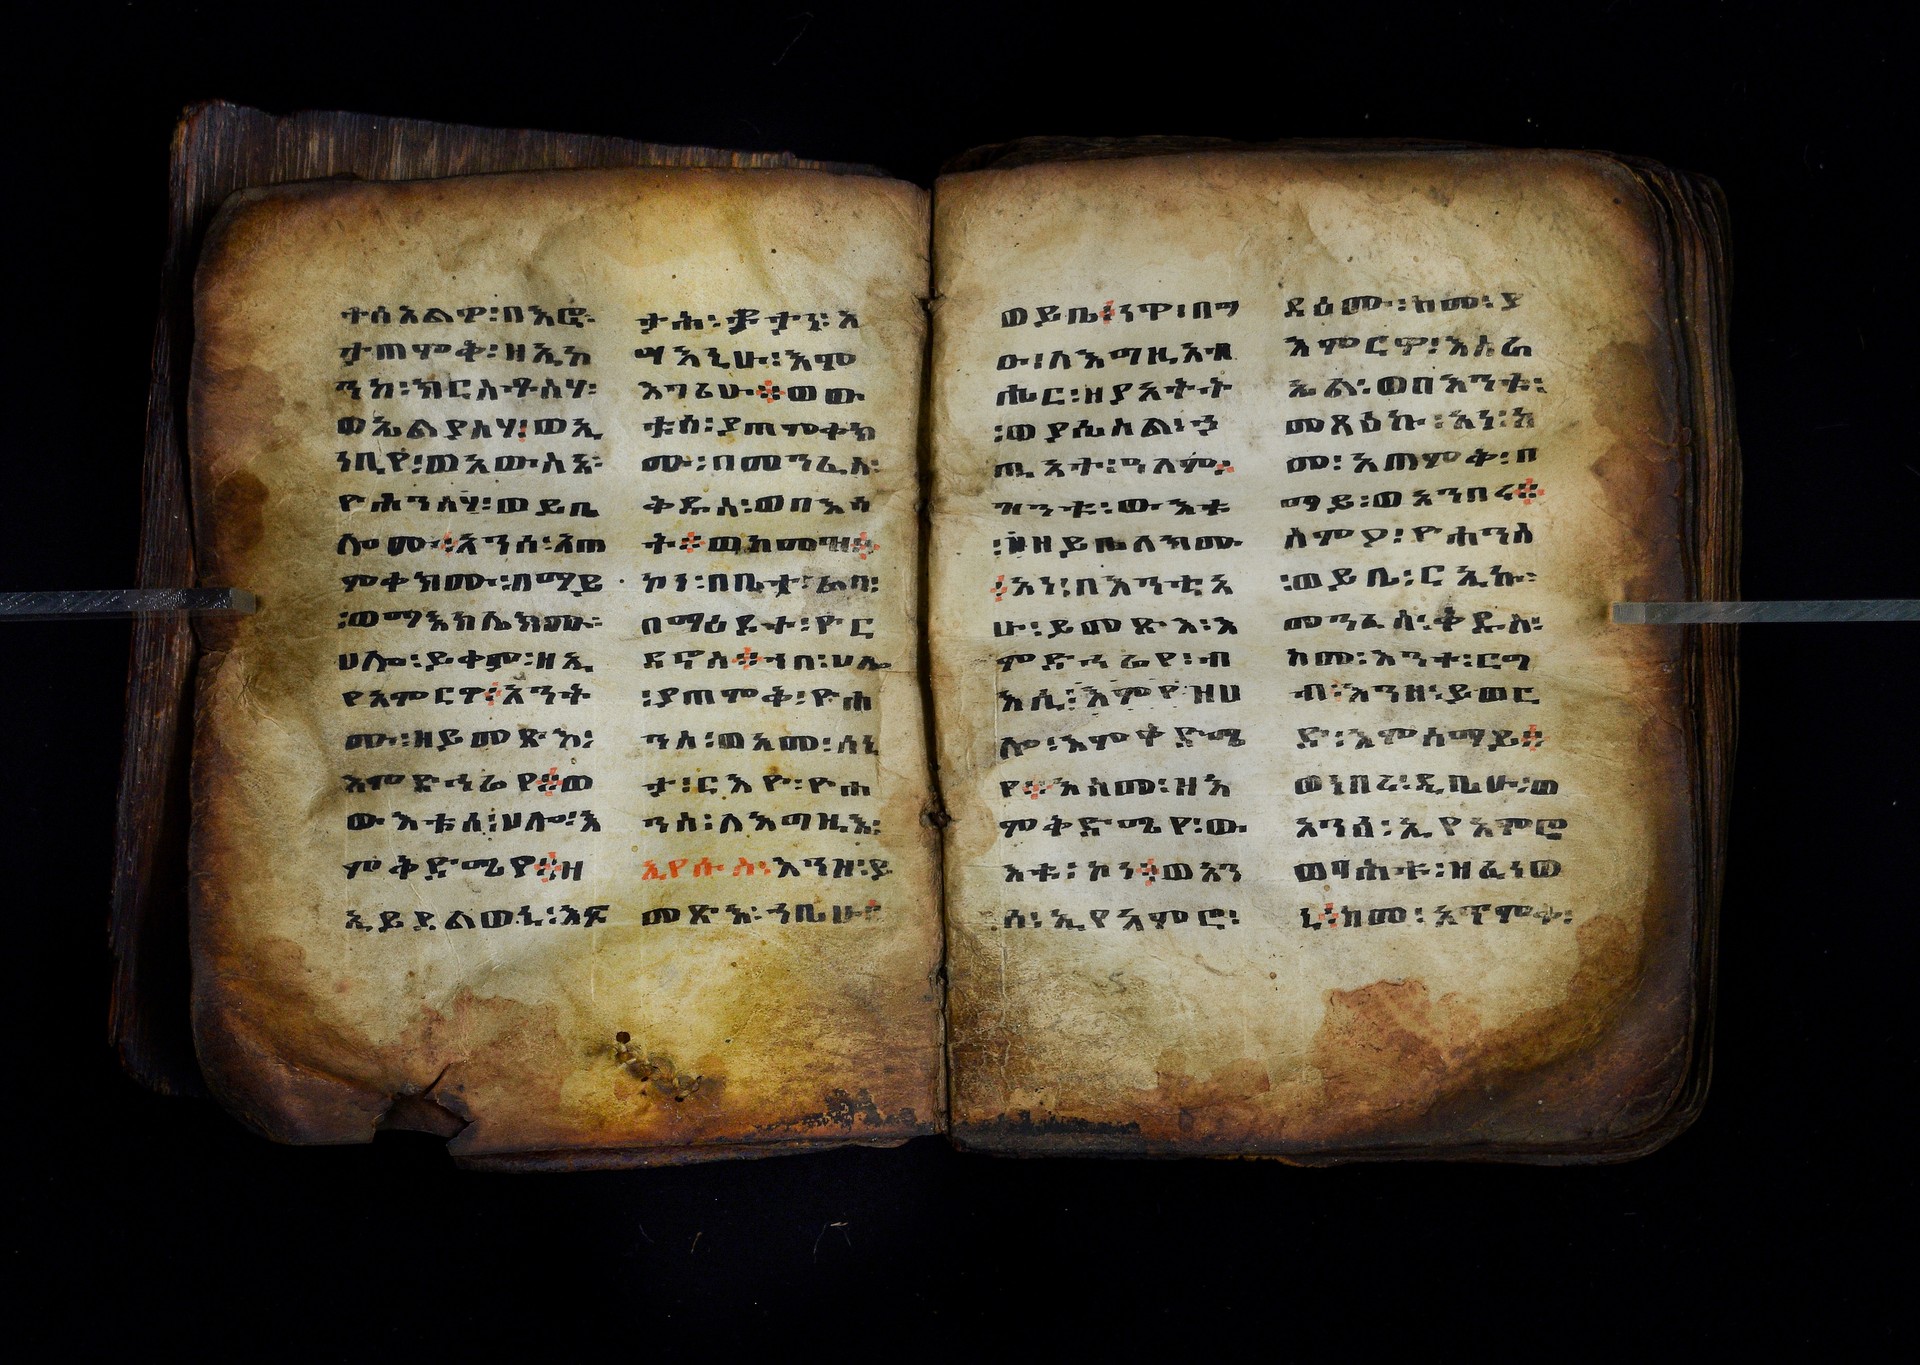 ተስእልዎ፡በእፎ፡
ታጠምቅ፡ዘኢኮ
ንከ፡ክርስቶስሃ፡
ወኤልያስሃ፡ወኢ
ነቢየ፡ወአውሥአ፡
ዮሐንስሃ፡ወይቤ
ሎሙ፡አንሰ፡አጠ
ምቀክሙ፡በማይ
፡ወማእከሌክሙ፡
ሀሎ፡ይቀም፡ዘኢ
የአምርዎ፨አንት
ሙ፡ዘይመጽእ፡
እምድኅሬየ፨ወ
ውእቱሰ፡ሀሎ፡እ
ምቅድሜየ፨ዘ
ኢይደልወኒ፡እፍ
ታሕ፡ቶታነ፡አ
ሣእኒሁ፡እም
እግሩሁ፨ወው
ቱሰ፡ያጠምቀክ
ሙ፡በመንፈስ፡
ቅዱስ፡ወበእሳ
ት፨ወከመዝ፨
ኮነ፡በቤተ፡ራባ፡
በማዕደተ፡ዮር
ዳኖስ፨ኀበ፡ሀሎ
፡ያጠምቅ፡ዮሐ
ንስ፡ወአመ፡ሳኒ
ታ፡ርእዮ፡ዮሐ
ንስ፡ለእግዚእ፡
ኢየሱስ፡እንዘ፡ይ
መጽእ፡ኀቤሁ፨
ወይቤ፨ነዋ፡በግ
ዑ፡ለእግዚአብ
ሔር፡ዘያአትት
፡ወያሴስል፡ኃ
ጢአተ፡ዓለም፨
ዝንቱ፡ውእቱ
፡ዘይቤለክሙ
፨አነ፡በእንቲአ
ሁ፡ይመጽእ፡እ
ምድኅሬየ፡ብ
እሲ፡እምየ፡ዝሀ
ሎ፡እምቅድሜ
የ፨እስመ፡ዝእ
ምቅድሜየ፡ው
እቱ፡ኮነ፨ወአን
ሰ፡ኢየአምሮ፡
ዳዕሙ፡ከመ፡ያ
እምርዎ፡እስራ
ኤል፡ወበእንቱ፡
መጻዕኩ፡አነ፡ከ
መ፡አጠምቅ፡በ
ማይ፡ወአንበሩ፨
ስምዖ፡ዮሐንስ
፡ወይቤ፡ርኢኩ፡
መንፈስ፡ቅዱስ፡
ከመ፡እንተ፡ርግ
ብ፡እንዘ፡ይወር
ድ፡እምሰማይ፨
ወነበረ፡ዲቤሁ፡ወ
አንሰ፡ኢየአምሮ
ወባሕቱ፡ዘፈነወ
ኒ፨ከመ፡አጥምቅ፡